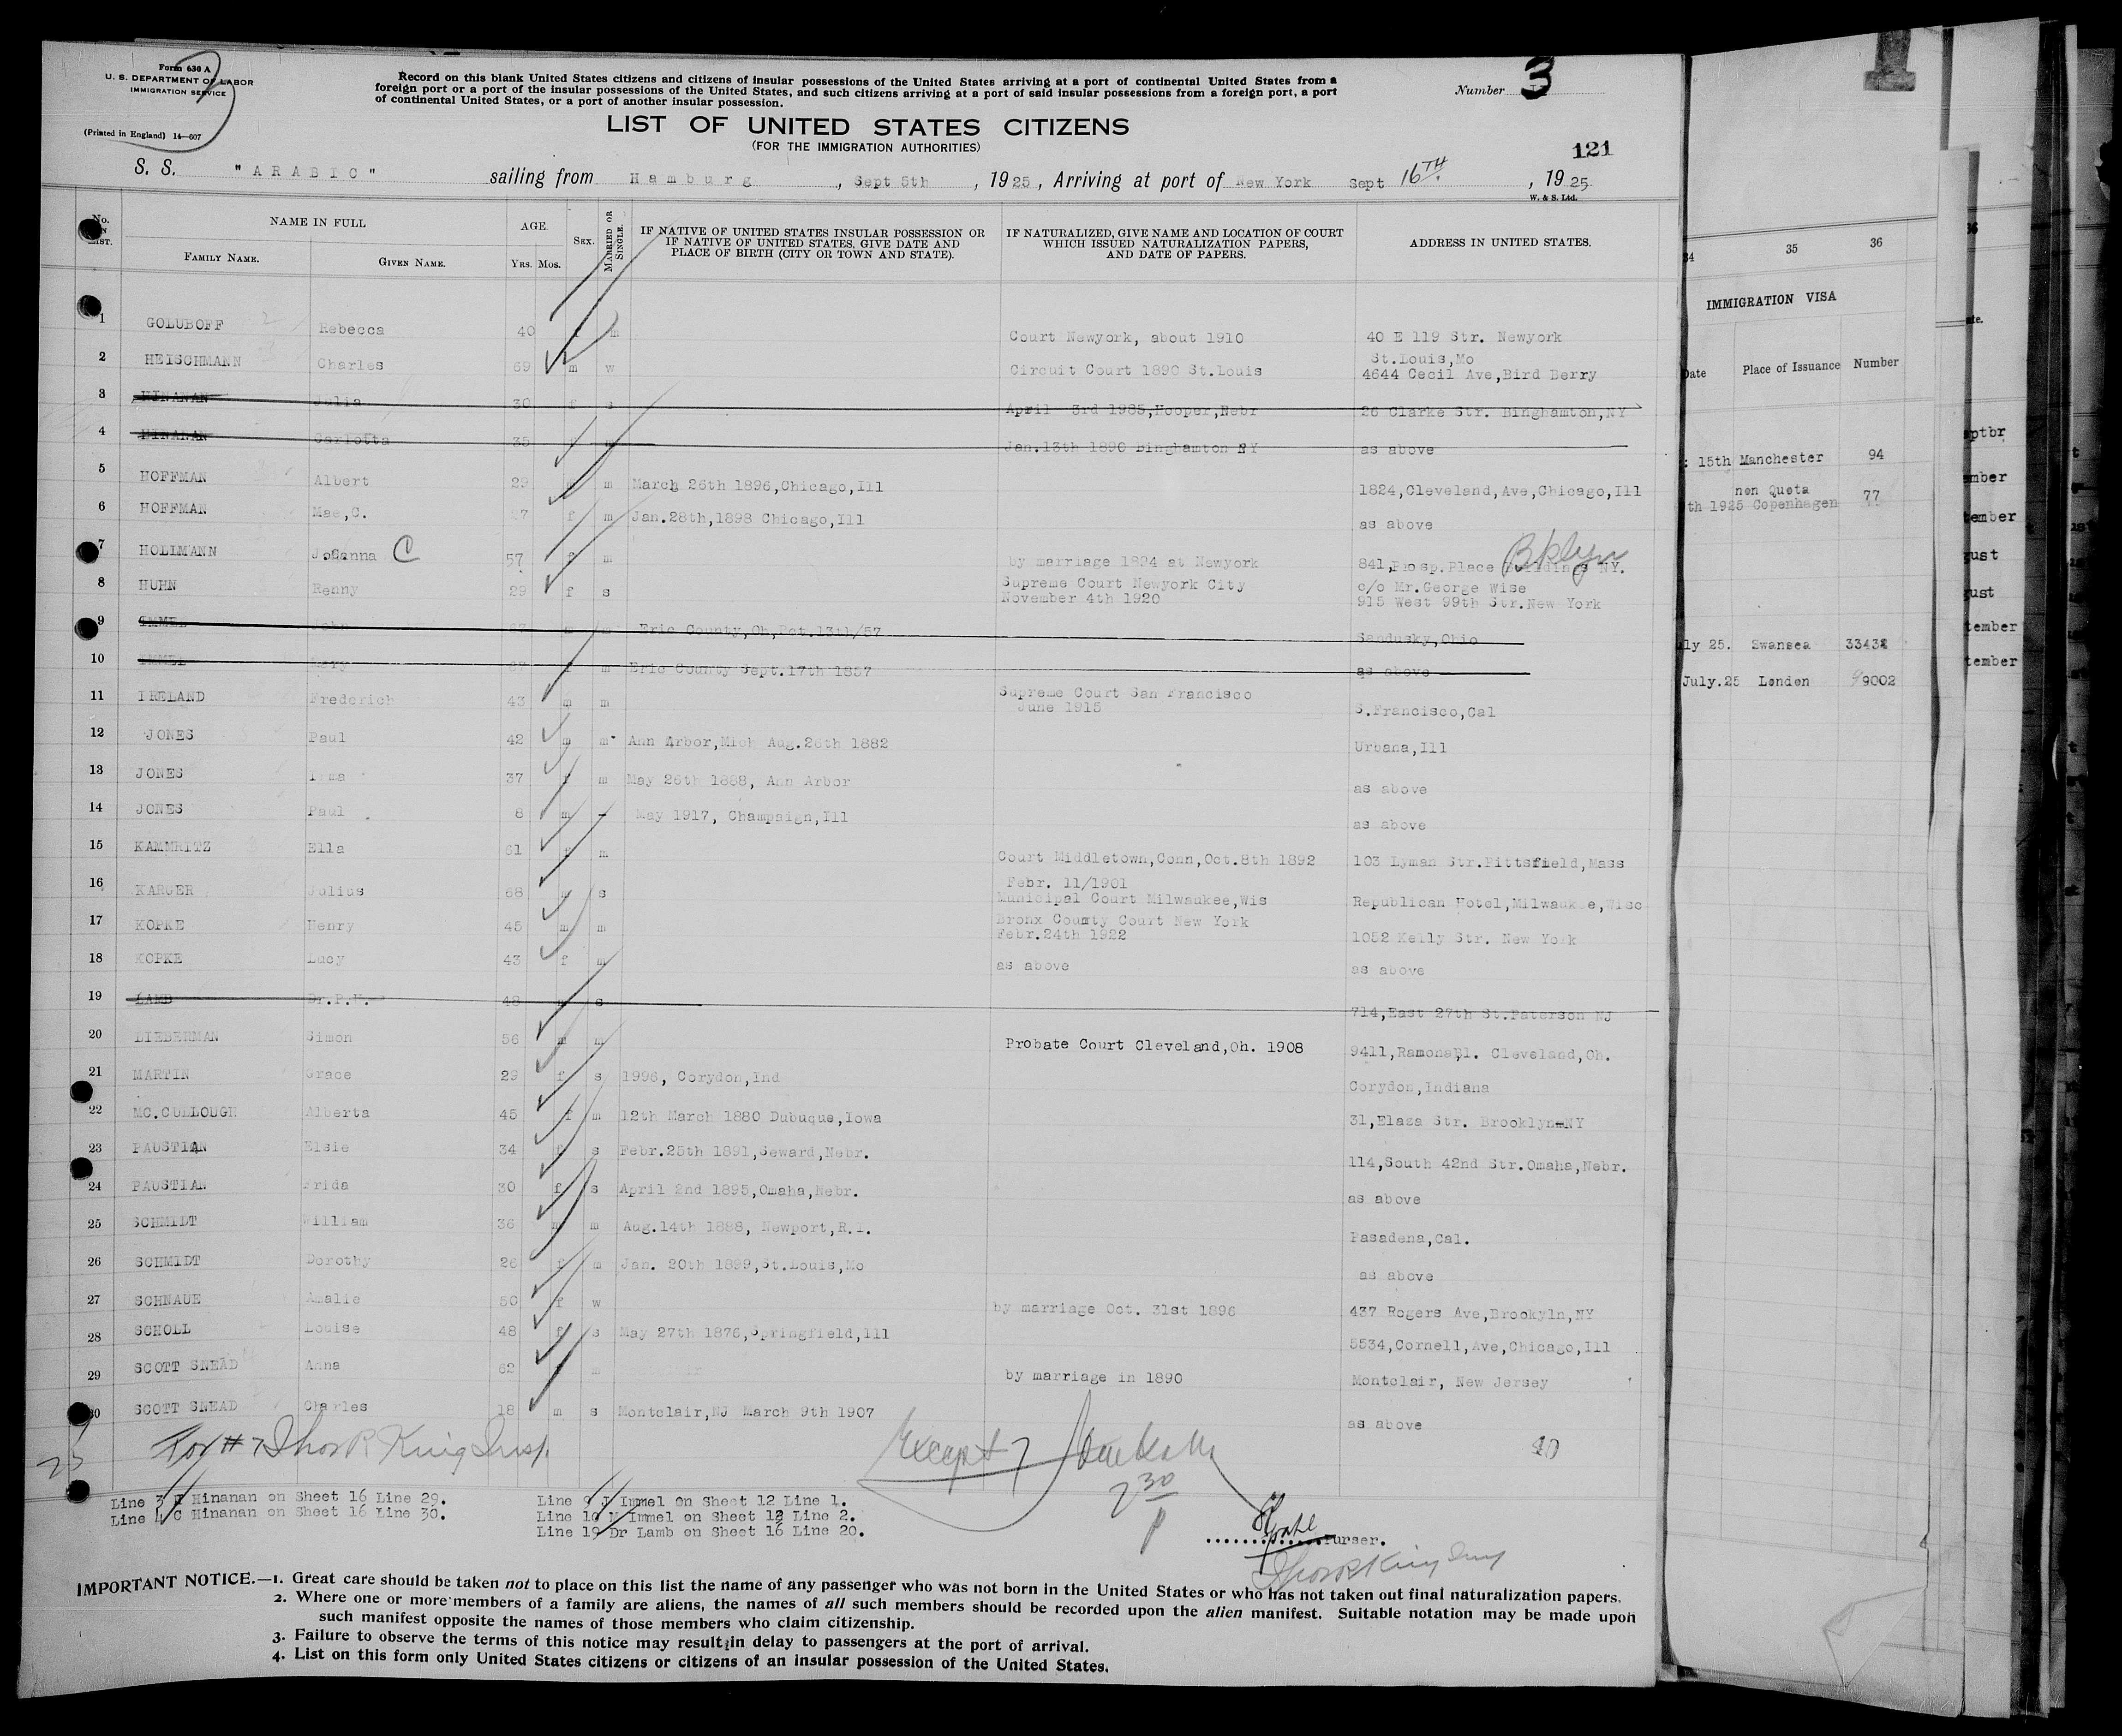 Form 630 A
U. S. DEPARTMENT OF LABOR
IMMIGRATION SERVICE
(Printed in England) 14—607
Record on this blank United States citizens and citizens of insular possessions of the United States arriving at a port of continental United States from a
foreign port or a port of the insular possessions of the United States, and such citizens arriving at a port of said insular possessions from a foreign port, a port
of continental United States, or a port of another insular possession.
Number 3
LIST OF UNITED STATES CITIZENS
(FOR THE IMMIGRATION AUTHORITIES)
121
S. S. "ARABIC" sailing from Hamburg, Sept 5th, 1925, Arriving at port of New York Sept 16TH, 1925
W. & S. Ltd.
No. LIST. NAME IN FULL FAMILY NAME. GIVEN NAME. AGE. YRS. MOS. SEX. MARRIED OR SINGLE. IF NATIVE OF UNITED STATES INSULAR POSSESSION OR IF NATIVE OF UNITED STATES, GIVE DATE AND PLACE OF BIRTH (CITY OR TOWN AND STATE). IF NATURALIZED, GIVE NAME AND LOCATION OF COURT WHICH ISSUED NATURALIZATION PAPERS, AND DATE OF PAPERS. ADDRESS IN UNITED STATES.
1 GOLUBOFF Rebecca 40 f m Court Newyork, about 1910 40 E 119 Str. Newyork
2 HEISCHMANN Charles 69 m w Circuit Court 1890 St.Louis St.Louis,Mo
4644 Cecil Ave,Bird Berry
3 HINANAN Julia 30 f s April 3rd 1985,Hooper,Nebr 26 Clarke Str. Binghamton,NY
4 HINANAN Carlotta 35 Jan.13th 1890 Binghamton NY as above
5 HOFFMAN Albert 29 m March 26th 1896,Chicago,Ill 1824,Cleveland,Ave,Chicago,Ill
6 HOFFMAN Mae,C. 27 f m Jan.28th,1898 Chicago,Ill as above
7 HOLLMANN Johanna C 57 f m by marriage 1894 at Newyork 841,Prosp.Place NY. Bklyn
8 HUHN Renny 29 f s Supreme Court Newyork City c/o Mr.George Wise
November 4th 1920 915 West 99th Str.New York
9 IMMEL John 67 m Eric County,Oh,Oct.13th/57 Sandusky,Ohio
10 IMMEL 67 f m Eric County Sept.17th 1857 as above
11 IRELAND Frederich 43 m m Supreme Court San Francisco
June 1915 S.Francisco,Cal
12 JONES Paul 42 m m Ann Arbor,Mich Aug.26th 1882 Urbana,Ill
13 JONES Irma 37 f m May 26th 1888, Ann Arbor as above
14 JONES Paul 8 m - May 1917, Champaign,Ill as above
15 KAMMRITZ Ella 61 f m Court Middletown,Conn,Oct.8th 1892 103 Lyman Str.Pittsfield,Mass
16 KARGER Julius 68 m s Febr. 11/1901
Municipal Court Milwaukee,Wis Republican Hotel,Milwaukee,Wisc
17 KOPKE Henry 45 m m Bronx County Court New York
Febr.24th 1922 1052 Kelly Str. New York
18 KOPKE Lucy 43 f m as above as above
19 LAMB Dr.P.H. 48 m s 714,East 27th St.Paterson NJ
20 LIEBERMAN Simon 56 m m Probate Court Cleveland,Oh. 1908 9411,Ramona,Bl. Cleveland,Oh.
21 MARTIN Grace 29 f s 1996, Corydon,Ind Corydon,Indiana
22 MC.CULLOUGH Alberta 45 f m 12th March 1880 Dubuque,Iowa 31,Elaza Str. Brooklyn-NY
23 PAUSTIAN Elsie 34 f s Febr.25th 1891,Seward,Nebr. 114,South 42nd Str.Omaha,Nebr.
24 PAUSTIAN Frida 30 f s April 2nd 1895,Omaha,Nebr. as above
25 SCHMIDT William 36 m m Aug.14th 1888, Newport,R.I. Pasadena,Cal.
26 SCHMIDT Dorothy 26 f m Jan. 20th 1899,St.Louis,Mo as above
27 SCHNAUE Amalie 50 f w by marriage Oct. 31st 1896 437 Rogers Ave,Brookyln,NY
28 SCHOLL Louise 48 f s May 27th 1876,Springfield,Ill 5534,Cornell,Ave,Chicago,Ill
29 SCOTT SNEAD Anna 62 f m by marriage in 1890 Montclair, New Jersey
30 SCOTT SNEAD Charles 18 m s Montclair,NJ March 9th 1907 as above
For #7 Thos R King Insp.
Except 7
2 30
P
Line 3 J Hinanan on Sheet 16 Line 29.
Line 4 C Hinanan on Sheet 16 Line 30.
Line 9 J Immel on Sheet 12 Line 1.
Line 10 M Immel on Sheet 12 Line 2.
Line 19 Dr Lamb on Sheet 16 Line 20.
Purser.
Thos R King Insp
IMPORTANT NOTICE.—1. Great care should be taken not to place on this list the name of any passenger who was not born in the United States or who has not taken out final naturalization papers.
2. Where one or more members of a family are aliens, the names of all such members should be recorded upon the alien manifest. Suitable notation may be made upon
such manifest opposite the names of those members who claim citizenship.
3. Failure to observe the terms of this notice may result in delay to passengers at the port of arrival.
4. List on this form only United States citizens or citizens of an insular possession of the United States.
34 35 36
IMMIGRATION VISA
Date Place of Issuance Number
15th Manchester 94
non Quota
th 1925 Copenhagen 77
ly 25. Swansea 33434
July.25 London 99002